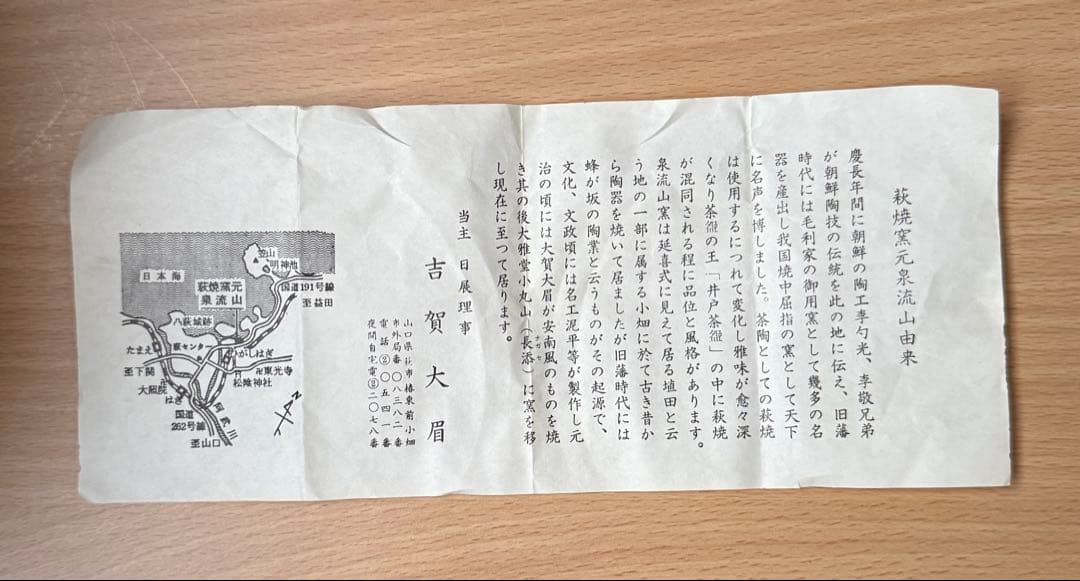 萩焼窯元泉流山由来
慶長年間に朝鮮の陶工李勺光、李敬兄弟
が朝鮮陶技の伝統を此の地に伝え、旧藩
時代には毛利家の御用窯として幾多の名
器を産出し我国焼中屈指の窯として天下
に名声を博しました。茶陶としての萩焼
は使用するにつれて変化し雅味が愈々深
くなり茶盌の王「井戸茶盌」の中に萩焼
が混同される程に品位と風格があります。
泉流山窯は延喜式に見えて居る埴田と云
う地の一部に属する小畑に於て古き昔か
ら陶器を焼いて居ましたが旧藩時代には
蜂が坂の陶業と云うものがその起源で、
文化、文政頃には名工泥平等が製作し元
治の頃には大賀大眉が安南風のものを焼
き其の後大雅堂小丸山(長添)に窯を移
ナガセ
し現在に至つて居ります。
当主 日展理事
吉賀大眉
山口県萩市椿東前小畑
市外局番〇八三八二番
電話②〇五四一番
夜間自宅電②二〇七八番
日本海
笠山
明神池
萩焼窯元
泉流山
国道191号線
至益田
八萩城跡
たまえ
萩センター
ひがしはぎ
至下関
卍東光寺
松陰神社
大照院
はぎ
国道
262号線
阿武川
至山口
N